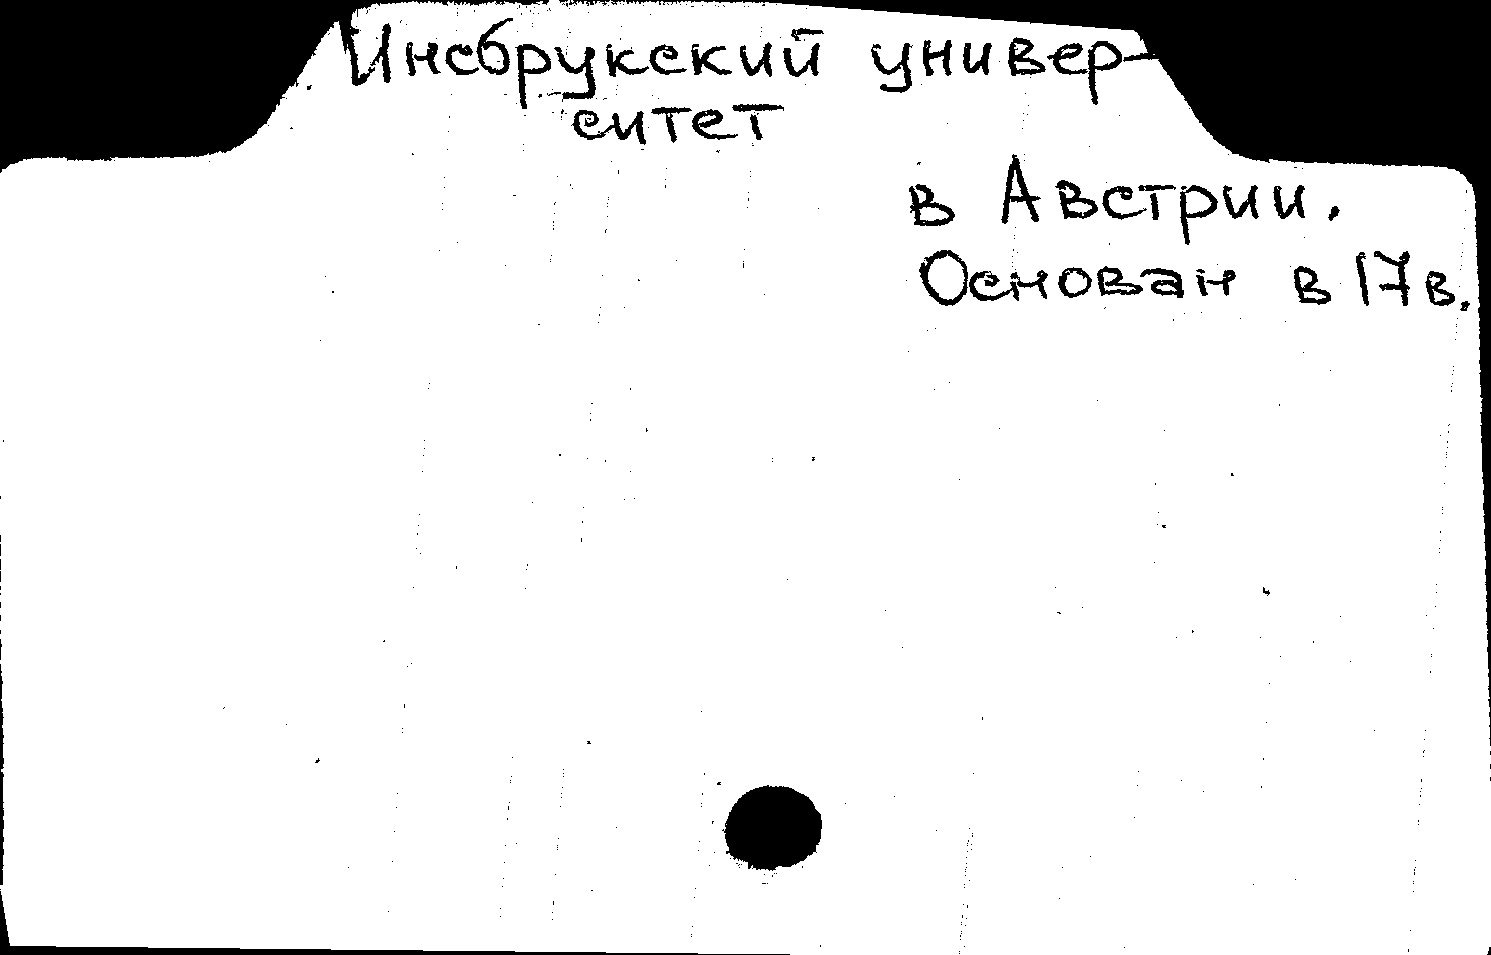 Инсбрукский универ-
ситет
в Австрии.
Основан в 17 в.